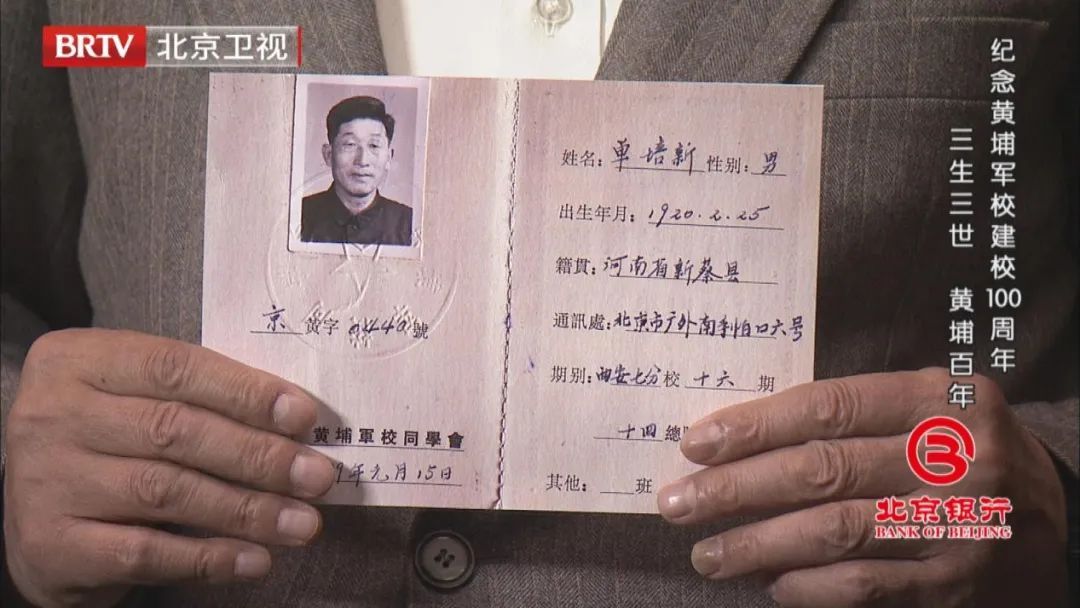 BRTV 北京卫视
纪念黄埔军校建校100周年
三生三世 黄埔百年
京 黄字0440號
黄埔軍校同學會
9年元月15日
姓名:單培新 性别:男
出生年月:1920.2.25
籍貫:河南省新蔡县
通訊處:北京市户外南剎怕口六号
期别:西安七分校十六期
十四總
其他: 班
北京银行
BANK OF BEIJING